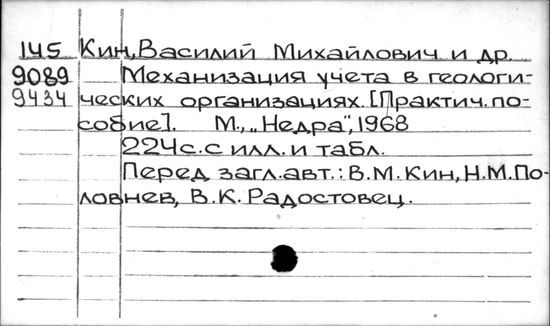 145 Кин, Василий Михайлович и др.
9089 Механизация учета в геологи-
9434 ческих организациях. [Практич. по-
собие]. М., „Недра", 1968
224с. с илл. и табл.
Перед загл. авт.: В.М. Кин, Н.М. По-
ловнев, В.К. Радостовец.